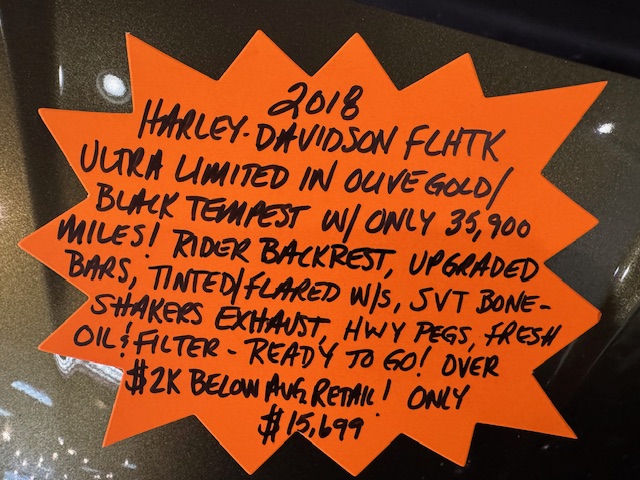 2018
HARLEY-DAVIDSON FLHTK
ULTRA LIMITED IN OLIVE GOLD/
BLACK TEMPEST W/ ONLY 35,900
MILES! RIDER BACKREST, UPGRADED
BARS, TINTED/FLARED W/S, SVT BONE-
SHAKERS EXHAUST, HWY PEGS, FRESH
OIL & FILTER - READY TO GO! OVER
$2K BELOW AVG. RETAIL! ONLY
$15,699